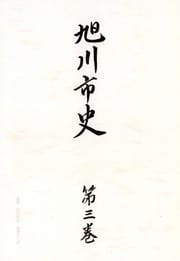 旭川市史
第三巻